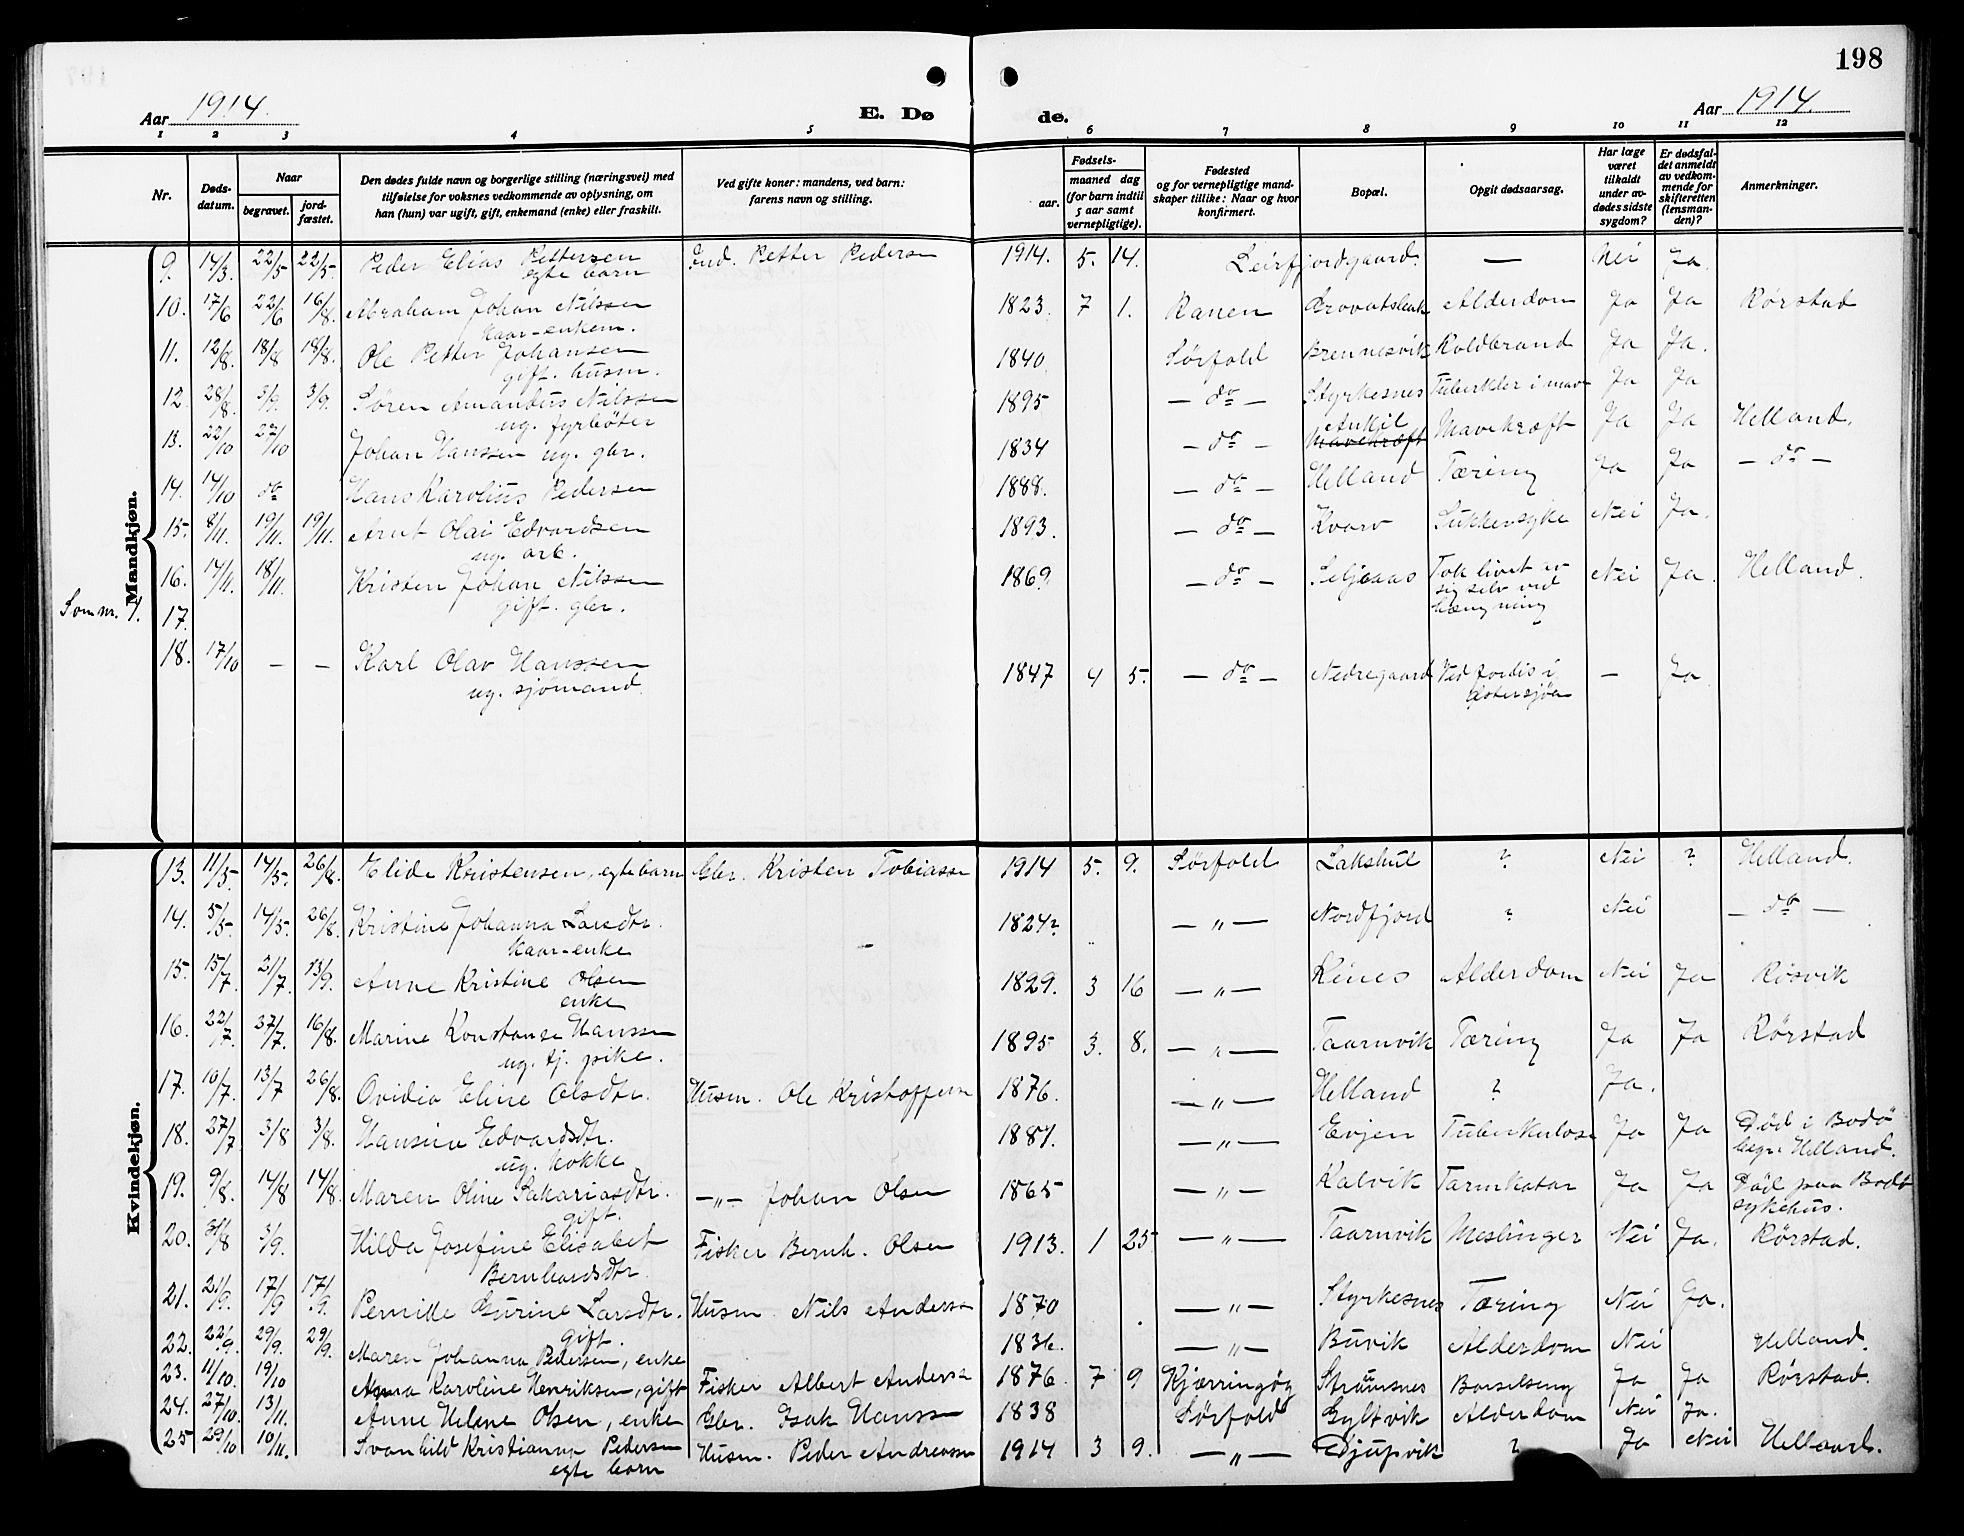 198
Aar 1914. E. Dø de. Aar 1914.
1 2 3 4 5 6 7 8 9 10 11 12
Nr. Døds-datum. Naar begravet. jord-fæstet. Den dødes fulde navn og borgerlige stilling (næringsvei) med tilføielse for voksnes vedkommende av oplysning, om han (hun) var ugift, gift, enkemand (enke) eller fraskilt. Ved gifte koner: mandens, ved barn: farens navn og stilling. Fødsels- aar. maaned dag (for barn indtil 5 aar samt vernepligtige). Fødested og for vernepligtige mand-skaper tillike: Naar og hvor konfirmert. Bopæl. Opgit dødsaarsag. Har læge været tilkaldt under av-dødes sidste sygdom? Er dødsfal-det anmeldt av vedkom-mende for skifteretten (lensman-den)? Anmerkninger.
Mandkjøn.
9. 14/3. 22/5 22/5. Peder Elias Pettersen Petter Pedersen 1914. 5. 14. Leirfjordgaard. — Nei Ja.
egte barn
10. 17/6 22/6 16/8. Abraham Johan Nilssen 1823. 7 1. Ranen Alderdom Ja Ja Rørstad
kaar-enkem.
11. 12/8. 18/8 18/8. Ole Petter Johansen 1840. Sørfold Brennesvik Koldbrand Ja Ja.
gift. husm.
12. 28/8. 3/9. 3/9. Søren Amandus Nilssen 1895 — do — Styrkesnes Tuberkler i mave Ja Ja
ug. fyrbøter
13. 22/10 27/10 Johan Hanssen ug. gbr. 1834 — do — Mavekræft Mavekræft Ja Ja Helland.
14. 14/10 do Hans Karolius Pedersen 1888. — do — Helland Tæring Ja Ja — do —
15. 8/11. 19/11. 19/11. Arnt Olai Edvardsen 1893. — do — Kvarv Sukkersyke Nei Ja.
ug. arb.
16. 14/11. 18/11. Kristen Johan Nilssen 1869. — do — Seljeaas Tok livet av Nei Ja. Helland.
gift. gbr. sig selv ved
hængning
Som nr. 4. 17.
18. 17/10 — — Karl Olav Hanssen 1847 4 5. — do — Nedregaard Ved forlis i — Ja
ug. sjømand. Østersjøen
Kvindekjøn.
13. 11/5. 14/5. 26/8. Elide Kristensen, egte barn Gbr. Kristen Tobiassen 1914 5. 9. Sørfold Lakshul ? Nei ? Helland.
14. 5/5. 14/5. 26/8. Kristine Johanna Larsdtr. 1824? — „ — Nordfjord ? Nei — do —
kaar-enke
15. 15/7. 21/7. 13/9. Anne Kristine Olsen 1829. 3 16 — „ — Kines Alderdom Nei Ja Røsvik
enke
16. 22/7. 27/7. 16/8. Marine Konstanse Hanssen 1895 3. 8. — „ — Taarnvik Tæring Ja Ja Rørstad
ug. tj. pike.
17. 10/7. 13/7 26/8. Ovidia Eline Olsdtr. Husm. Ole Kristoffersen 1876. — „ — Helland ? Ja.
18. 27/7 3/8 3/8. Hansine Edvardsdtr. 1887. — „ — Evjen Tuberkulose Ja Ja Død i Bodø
ug. kokke begr. Helland.
19. 9/8. 14/8 14/8. Maren Oline Sakariasdtr. — „ — Johan Olsen 1865 — „ — Kalvik Tarmkatar Ja Ja Død paa Bodø
gift. sykehus.
20. 31/8 3/9. Hilda Josefine Elisabet Fisker Bernh. Olsen 1913. 1 25. — „ — Taarnvik Meslinger Nei Ja. Rørstad.
Bernhardsdtr.
21. 21/9. 17/9 17/9. Pernille Gurine Larsdtr. Husm. Nils Andersen 1870 — „ — Styrkesnes Tæring Nei Ja.
gift.
22. 22/9. 29/9. 29/9. Maren Johanna Pedersen, enke 1836. — „ — Buvik Alderdom Nei Helland.
23. 11/10. 19/10 Anna Karoline Henriksen, gift Fisker Albert Andersen 1876. 7 9 Kjærringøy Strømsnes Barselseng Ja Ja Rørstad.
24. 27/10. 13/11. Anne Helene Olsen, enke Gbr. Isak Hanssen 1838 Sørfold Gyltvik Alderdom Nei Ja.
25 29/10 10/11. Svanhild Kristianna Pedersen Husm. Peder Andreassen 1914 3 9. — „ — Djupvik ? Ja Nei Helland.
egte barn